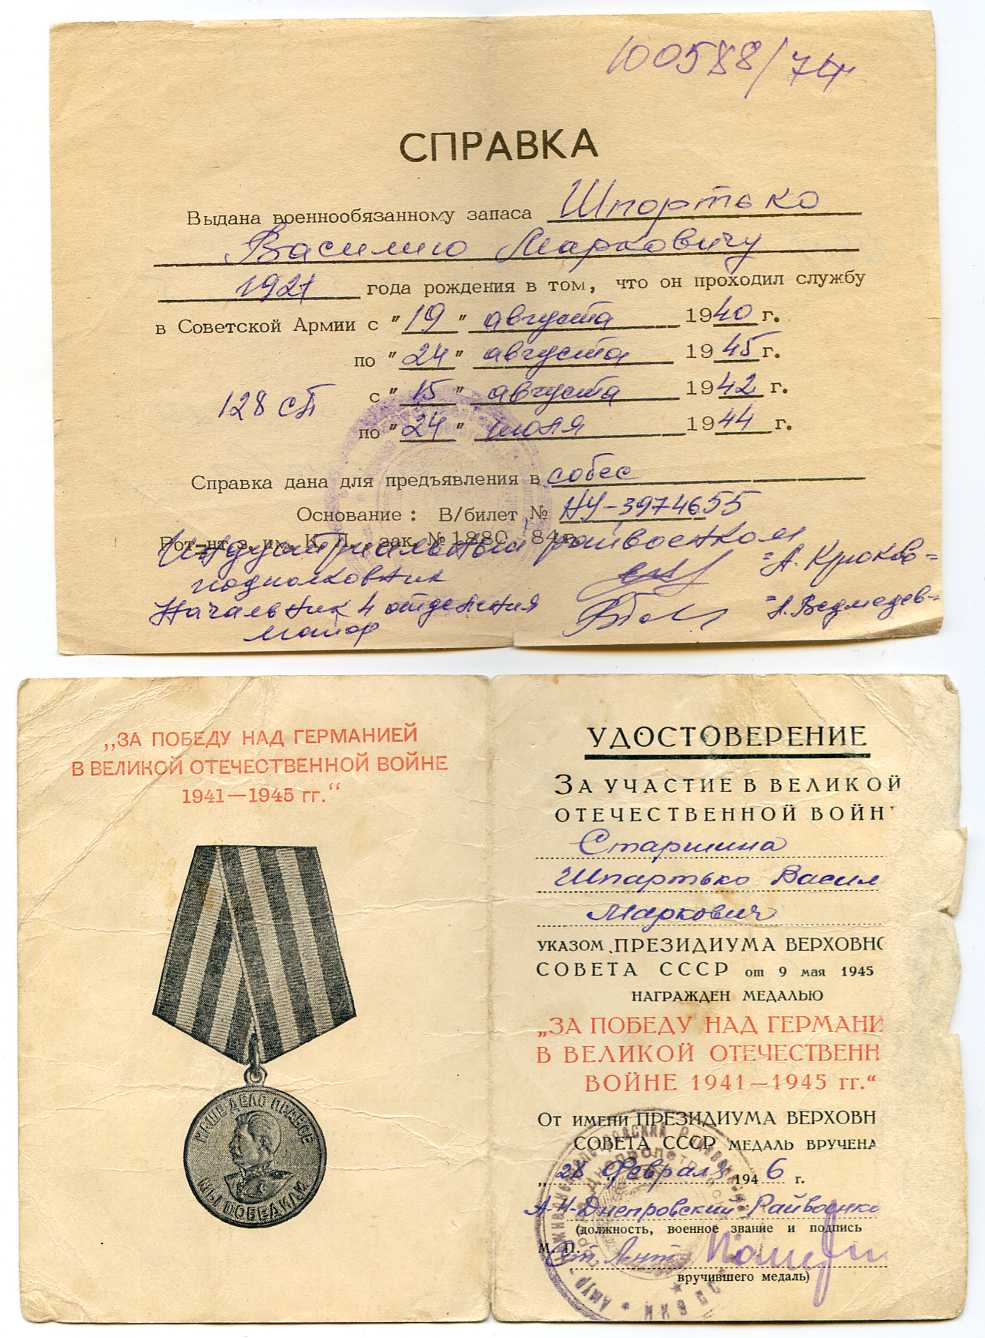 100588/74
СПРАВКА
Выдана военнообязанному запаса Шпортько
Василию Марковичу
1921 года рождения в том, что он проходил службу
в Советской Армии с "19" августа 1940 г.
по "24" августа 1945 г.
128 сп с "15" августа 1942 г.
по "24" июля 1944 г.
Справка дана для предъявления в собес
Основание: В/билет № НУ-3974655
зак. № 1880 84 г.
Индустриальный райвоенком
подполковник =А. Крюков=
Начальник 4 отделения =А. Ведмедев=
майор
„ЗА ПОБЕДУ НАД ГЕРМАНИЕЙ
В ВЕЛИКОЙ ОТЕЧЕСТВЕННОЙ ВОЙНЕ
1941—1945 гг.“
НАШЕ ДЕЛО ПРАВОЕ
МЫ ПОБЕДИЛИ
УДОСТОВЕРЕНИЕ
ЗА УЧАСТИЕ В ВЕЛИКОЙ
ОТЕЧЕСТВЕННОЙ ВОЙН
Старшина
Шпартько Васил
Маркович
УКАЗОМ ПРЕЗИДИУМА ВЕРХОВНО
СОВЕТА СССР от 9 мая 1945
НАГРАЖДЕН МЕДАЛЬЮ
„ЗА ПОБЕДУ НАД ГЕРМАНИ
В ВЕЛИКОЙ ОТЕЧЕСТВЕНН
ВОЙНЕ 1941—1945 гг.“
ОТ ИМЕНИ ПРЕЗИДИУМА ВЕРХОВН
СОВЕТА СССР МЕДАЛЬ ВРУЧЕНА
„28 февраля 1946 г.
А-Н-Днепровский Райвоенко
(должность, военное звание и подпись
М. П. Ст. Лейт
вручившего медаль)